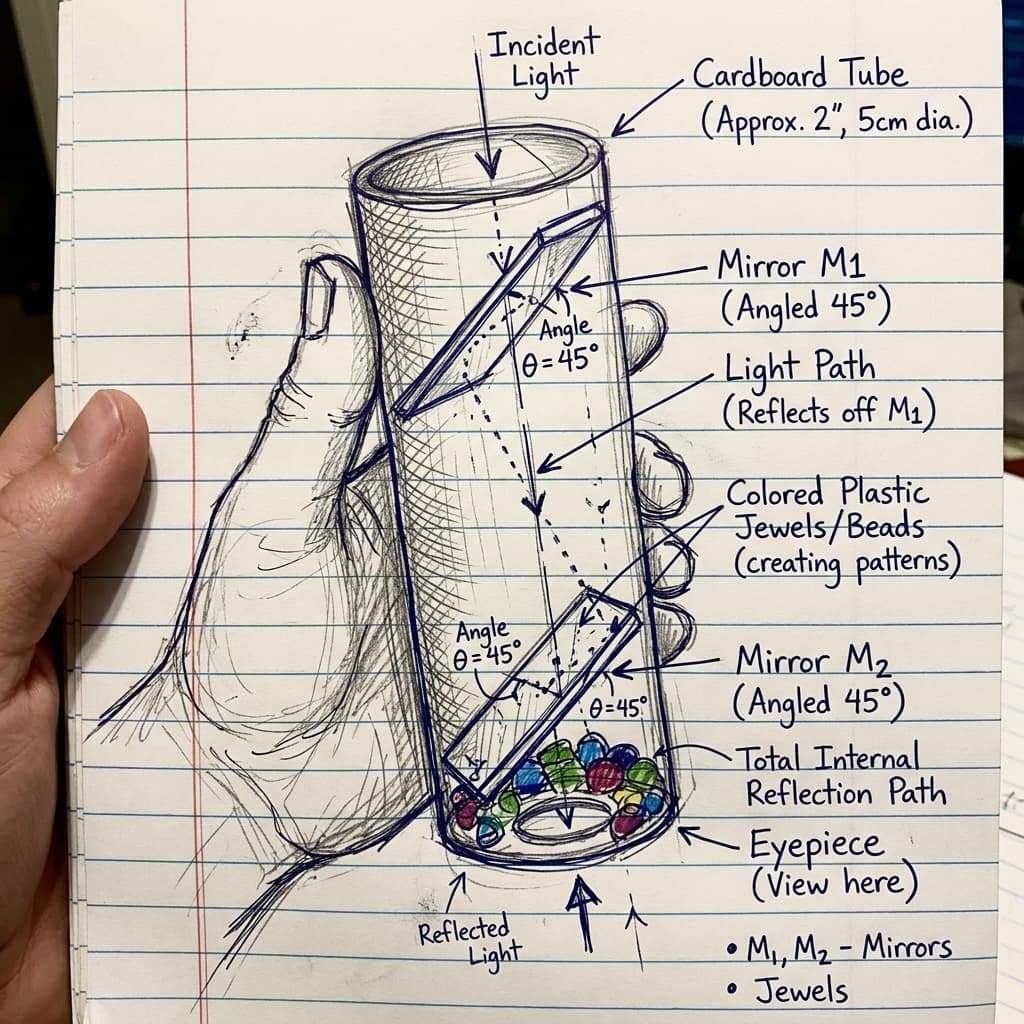 Incident
Light
Cardboard Tube
(Approx. 2", 5cm dia.)
Mirror M1
(Angled 45°)
Angle
θ=45°
Light Path
(Reflects off M1)
Colored Plastic
Jewels/Beads
(creating patterns)
Angle
θ=45°
Mirror M2
(Angled 45°)
θ=45°
Total Internal
Reflection Path
Eyepiece
(View here)
Reflected
Light
• M1, M2 - Mirrors
• Jewels